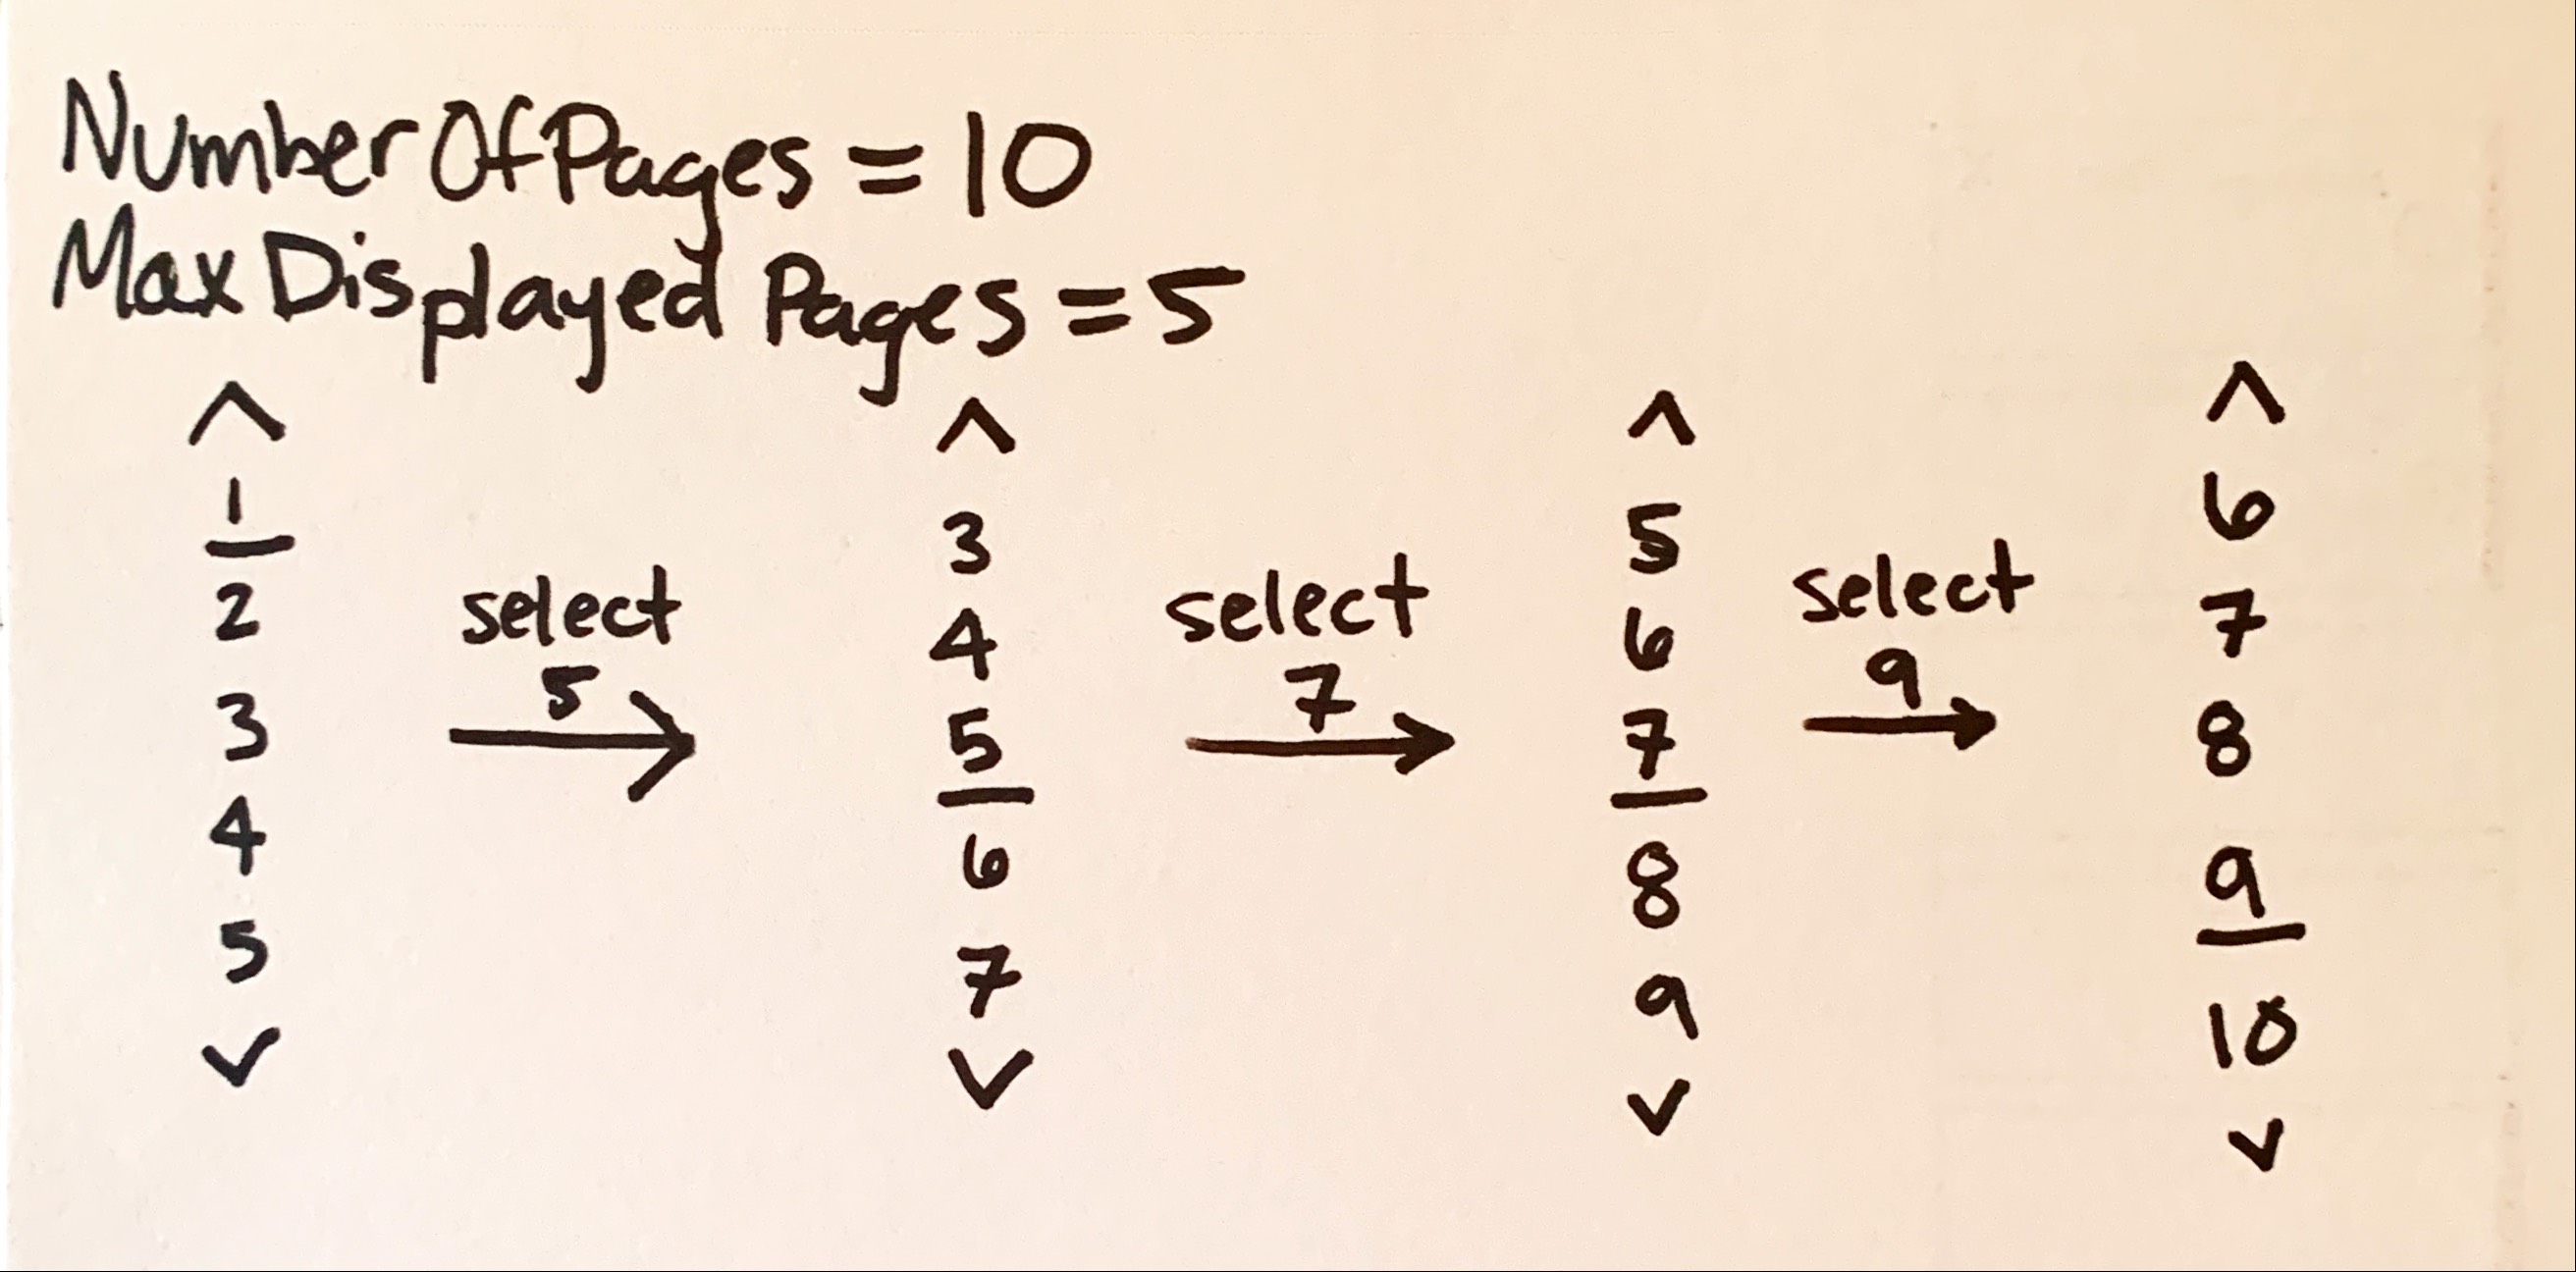 NumberOfPages = 10
Max Displayed Pages = 5
^
1
2
3
4
5
v
select
5
^
3
4
5
6
7
v
select
7
^
5
6
7
8
9
v
select
9
^
6
7
8
9
10
v